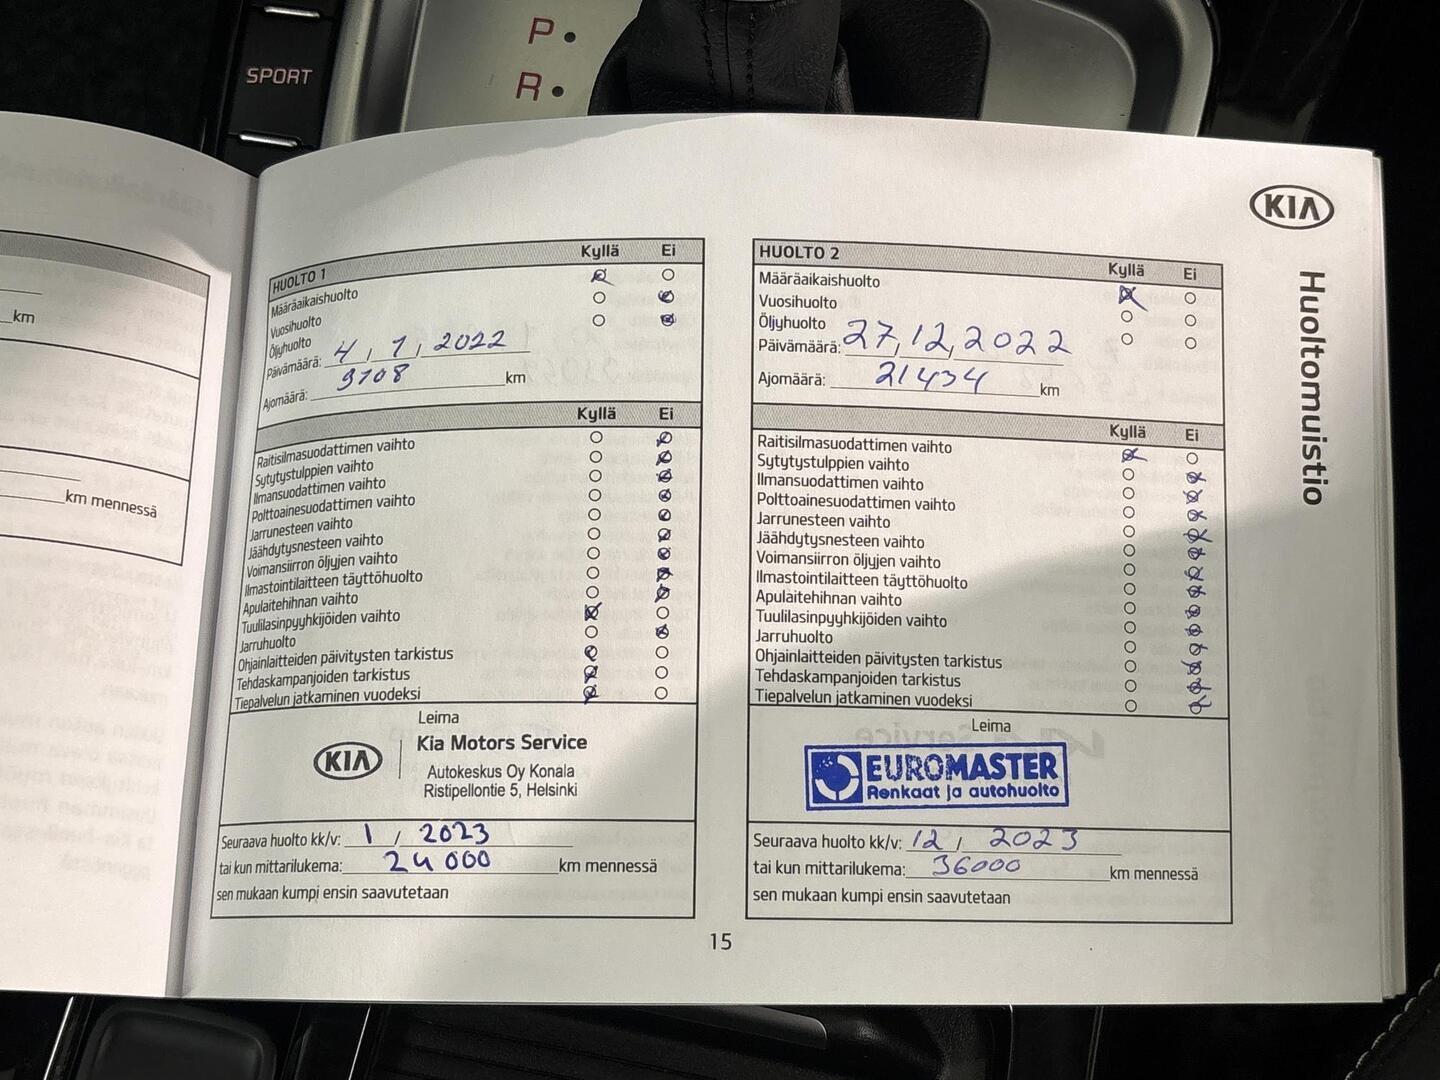 SPORT
P
R
km
km mennessä
KIA
Huoltomuistio
HUOLTO 1 Kyllä Ei
Määräaikaishuolto
Vuosihuolto
Öljyhuolto
Päivämäärä: 4, 1, 2022
Ajomäärä: 9708 km
Kyllä Ei
Raitisilmasuodattimen vaihto
Sytytystulppien vaihto
Ilmansuodattimen vaihto
Polttoainesuodattimen vaihto
Jarrunesteen vaihto
Jäähdytysnesteen vaihto
Voimansiirron öljyjen vaihto
Ilmastointilaitteen täyttöhuolto
Apulaitehihnan vaihto
Tuulilasinpyyhkijöiden vaihto
Jarruhuolto
Ohjainlaitteiden päivitysten tarkistus
Tehdaskampanjoiden tarkistus
Tiepalvelun jatkaminen vuodeksi
Leima
KIA
Kia Motors Service
Autokeskus Oy Konala
Ristipellontie 5, Helsinki
Seuraava huolto kk/v: 1 / 2023
tai kun mittarilukema: 24 000 km mennessä
sen mukaan kumpi ensin saavutetaan
HUOLTO 2 Kyllä Ei
Määräaikaishuolto
Vuosihuolto
Öljyhuolto
Päivämäärä: 27, 12, 2022
Ajomäärä: 21434 km
Kyllä Ei
Raitisilmasuodattimen vaihto
Sytytystulppien vaihto
Ilmansuodattimen vaihto
Polttoainesuodattimen vaihto
Jarrunesteen vaihto
Jäähdytysnesteen vaihto
Voimansiirron öljyjen vaihto
Ilmastointilaitteen täyttöhuolto
Apulaitehihnan vaihto
Tuulilasinpyyhkijöiden vaihto
Jarruhuolto
Ohjainlaitteiden päivitysten tarkistus
Tehdaskampanjoiden tarkistus
Tiepalvelun jatkaminen vuodeksi
Leima
EUROMASTER
Renkaat ja autohuolto
Seuraava huolto kk/v: 12 / 2023
tai kun mittarilukema: 36000 km mennessä
sen mukaan kumpi ensin saavutetaan
15